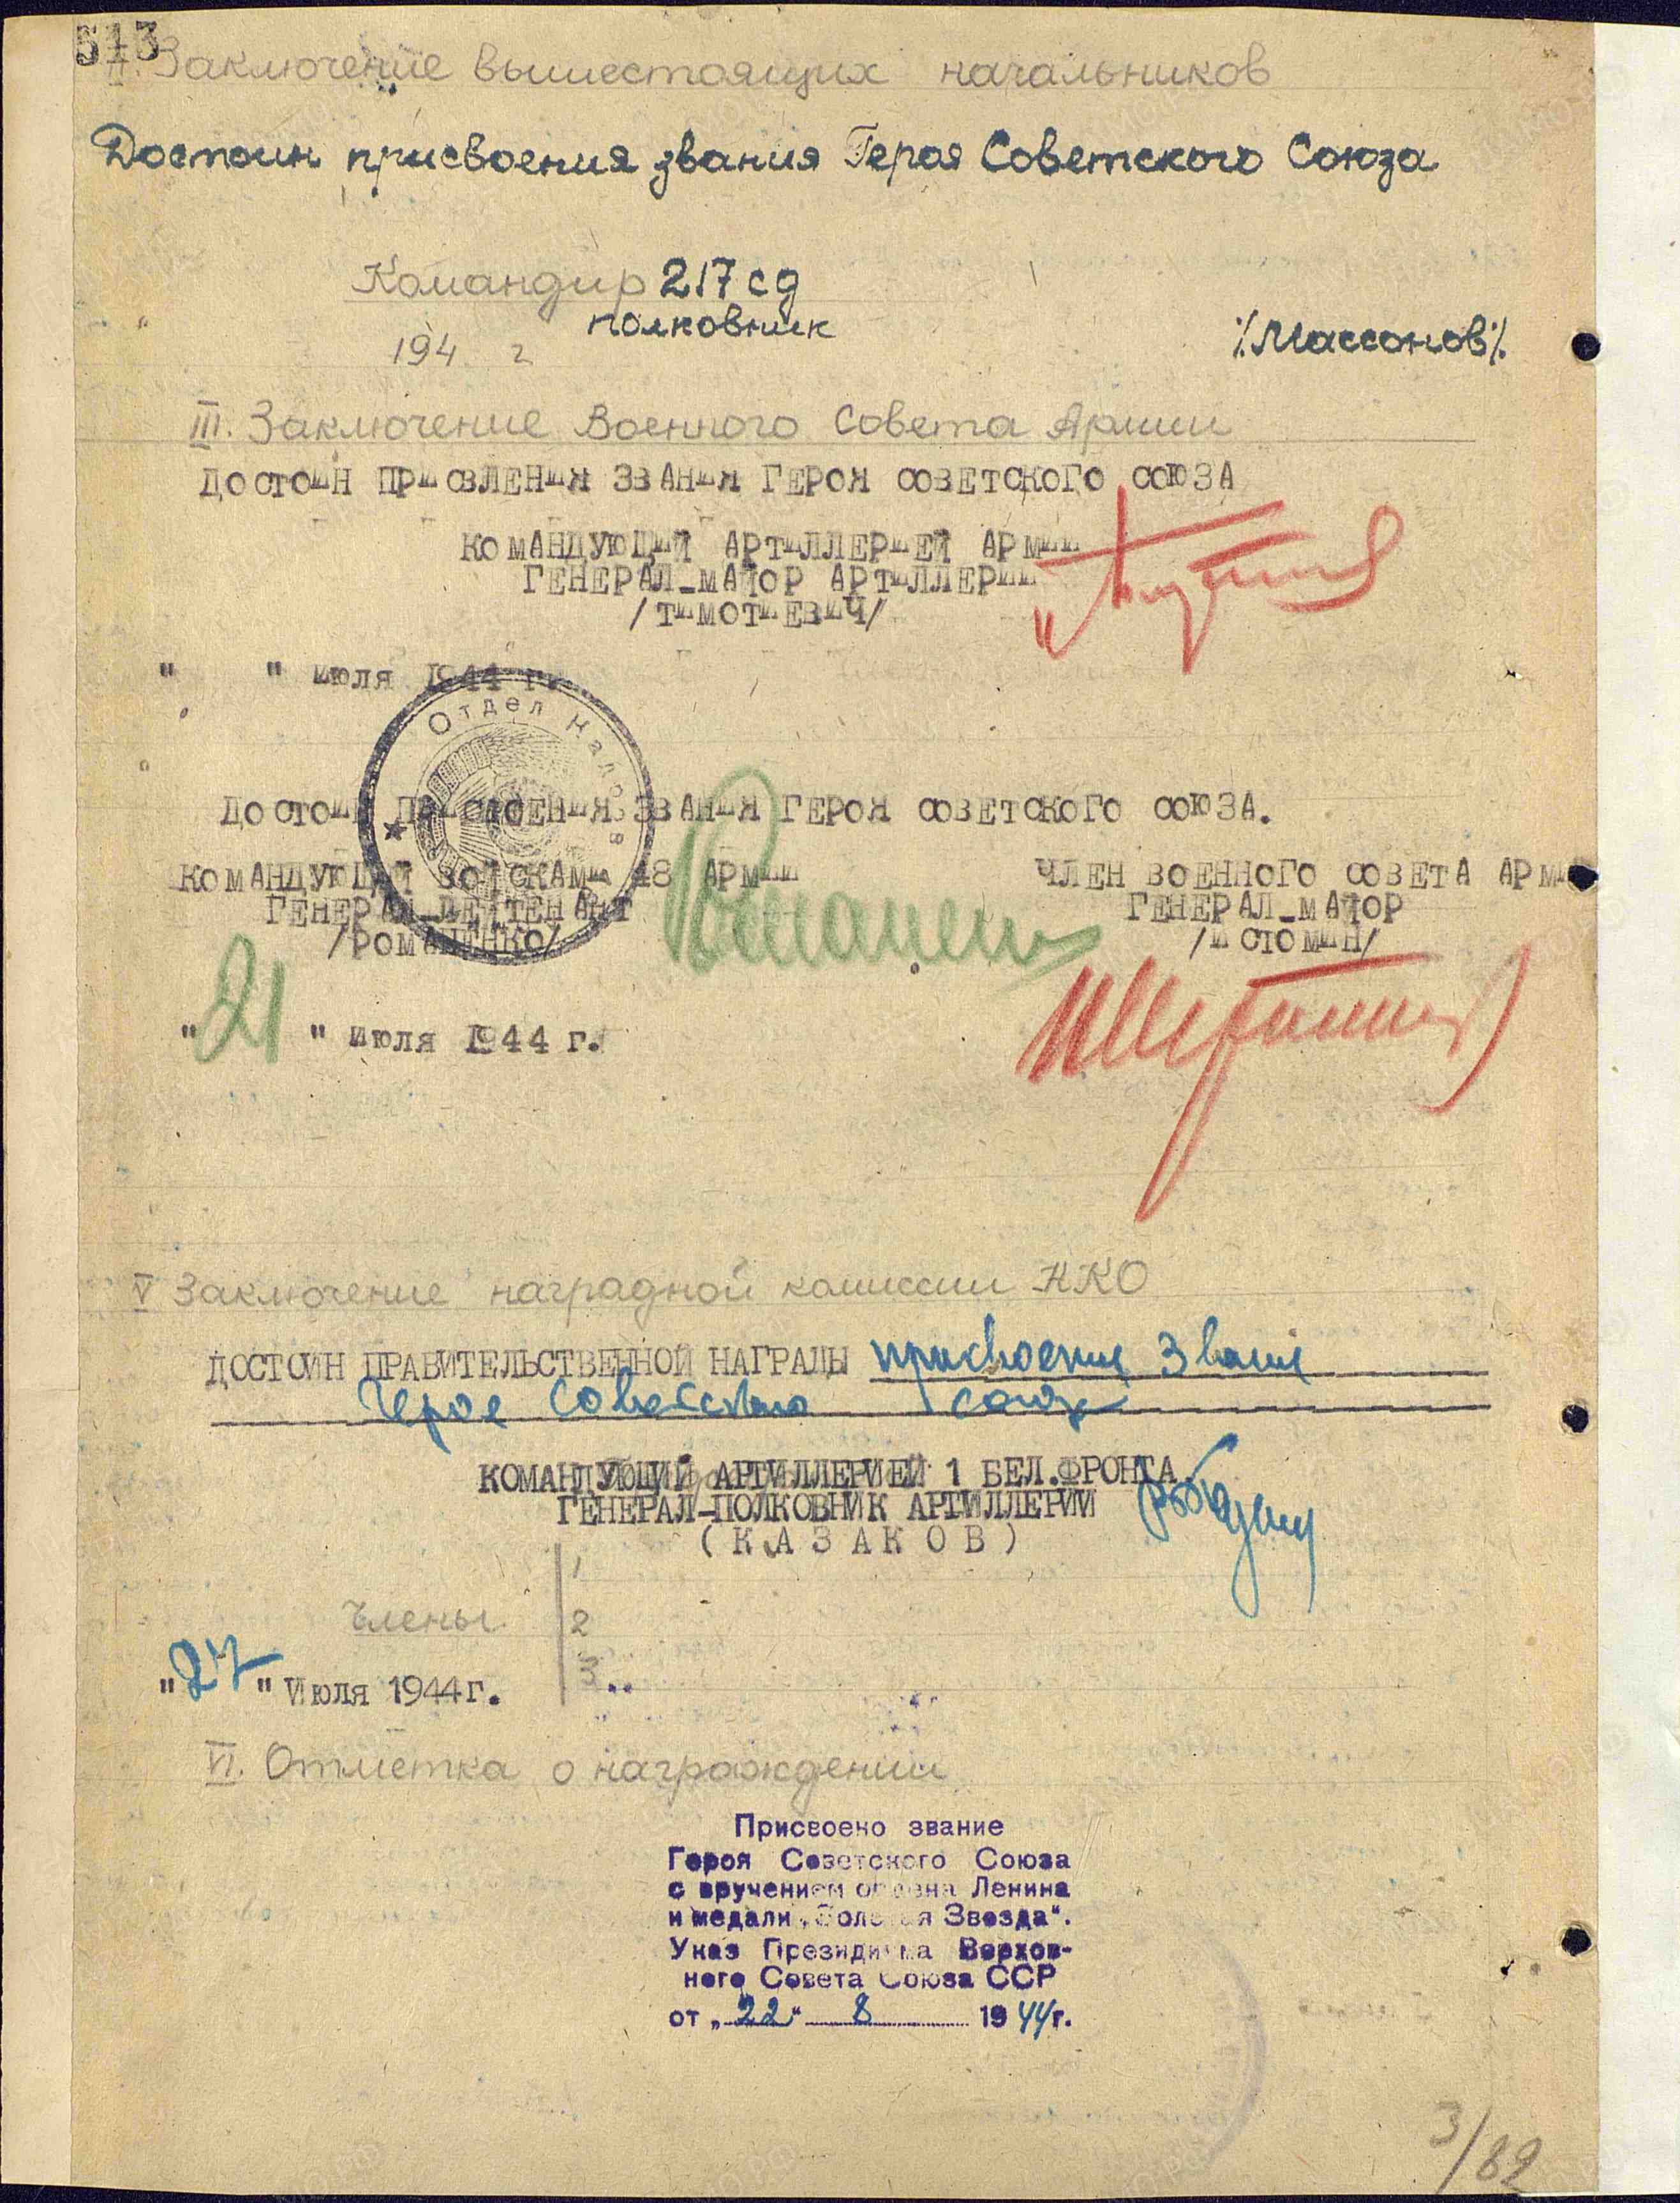 513
II. Заключение вышестоящих начальников
Достоин присвоения звания Героя Советского Союза
Командир 217 сд
полковник
194 г
/Массонов/
III. Заключение Военного Совета Армии
ДОСТОИН ПРИСВЛЕНИЯ ЗВАНИЯ ГЕРОЯ СОВЕТСКОГО СОЮЗА
КОМАНДУЮЩИЙ АРТИЛЛЕРИЕЙ АРМИИ
ГЕНЕРАЛ-МАЙОР АРТИЛЛЕРИИ
/ТИМОТИЕВИЧ/
" " июля 1944 г.
Отдел Кадров
ДОСТОИН ПРИСВОЕНИЯ ЗВАНИЯ ГЕРОЯ СОВЕТСКОГО СОЮЗА.
КОМАНДУЮЩИЙ ВОЙСКАМИ 48 АРМИИ
ГЕНЕРАЛ-ЛЕЙТЕНАНТ
/РОМАНЕНКО/
ЧЛЕН ВОЕННОГО СОВЕТА АРМИ
ГЕНЕРАЛ-МАЙОР
/ИСТОМИН/
"21" июля 1944 г.
V Заключение наградной комиссии НКО
ДОСТОИН ПРАВИТЕЛЬСТВЕННОЙ НАГРАДЫ присвоения звания
Героя Советского Союза
КОМАНДУЮЩИЙ АРТИЛЛЕРИЕЙ 1 БЕЛ.ФРОНТА
ГЕНЕРАЛ-ПОЛКОВНИК АРТИЛЛЕРИИ
(КАЗАКОВ)
1
Члены 2
3
"27" Июля 1944г.
VI. Отметка о награждении
Присвоено звание
Героя Советского Союза
с вручением ордена Ленина
и медали „Золотая Звезда".
Указ Президиума Верхов-
ного Совета Союза ССР
от „22" 8 1944г.
3/82